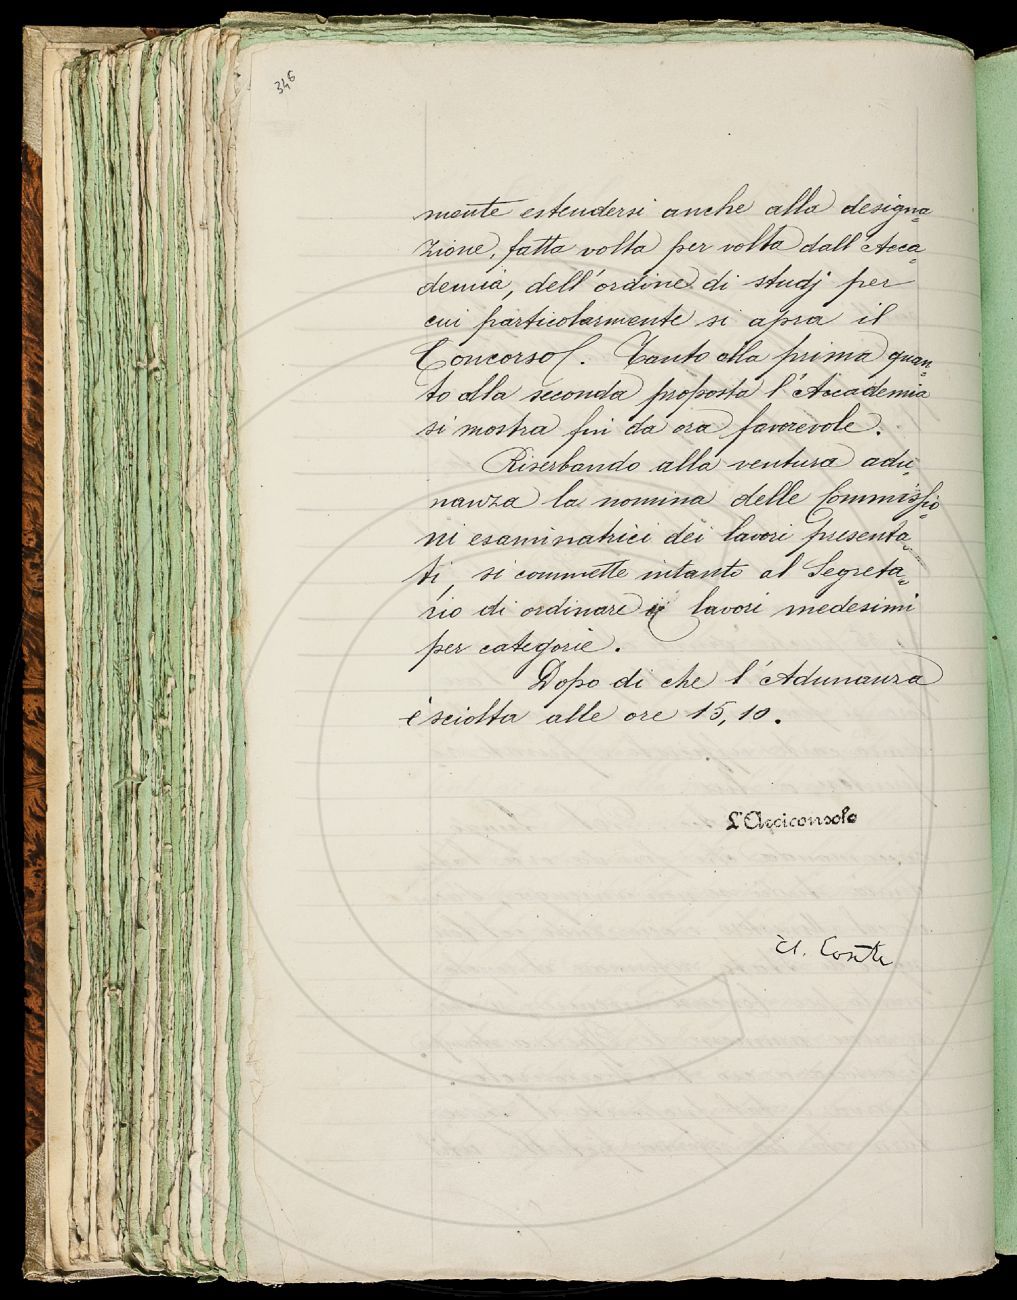 346
mente estendersi anche alla designa=
zione, fatta volta per volta dall'Acca=
demia, dell'ordine di studj per
cui particolarmente si apra il
Concorso. Tanto alla prima quan=
to alla seconda proposta l'Accademia
si mostra fin da ora favorevole.
Riserbando alla ventura adu=
nanza la nomina delle Commissio=
ni esaminatrici dei lavori presenta=
ti, si commette intanto al Segreta=
rio di ordinare i lavori medesimi
per categorie.
Dopo di che l'Adunanza
è sciolta alle ore 15,10.
L'Arciconsolo
A. Conti